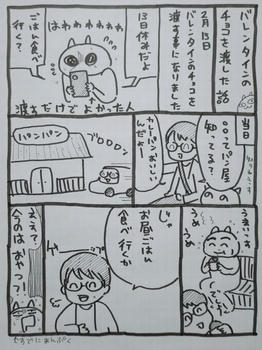 バレンタインの
チョコを渡した話
2月13日
バレンタインのチョコを
渡す事になりました
はわわわわわわ
13日休みだよ
ごはん食べ
行く？
渡すだけでよかった人
当日
○○○ってパン屋
知ってる？
カレーパンおいしい
んだよー
パンパン
ブロロロ
うまいっす
うめ
うめ
じゃ
お昼ごはん
食べ行くか
ええっ？
今のはおやつ！？
すでにまんぷく